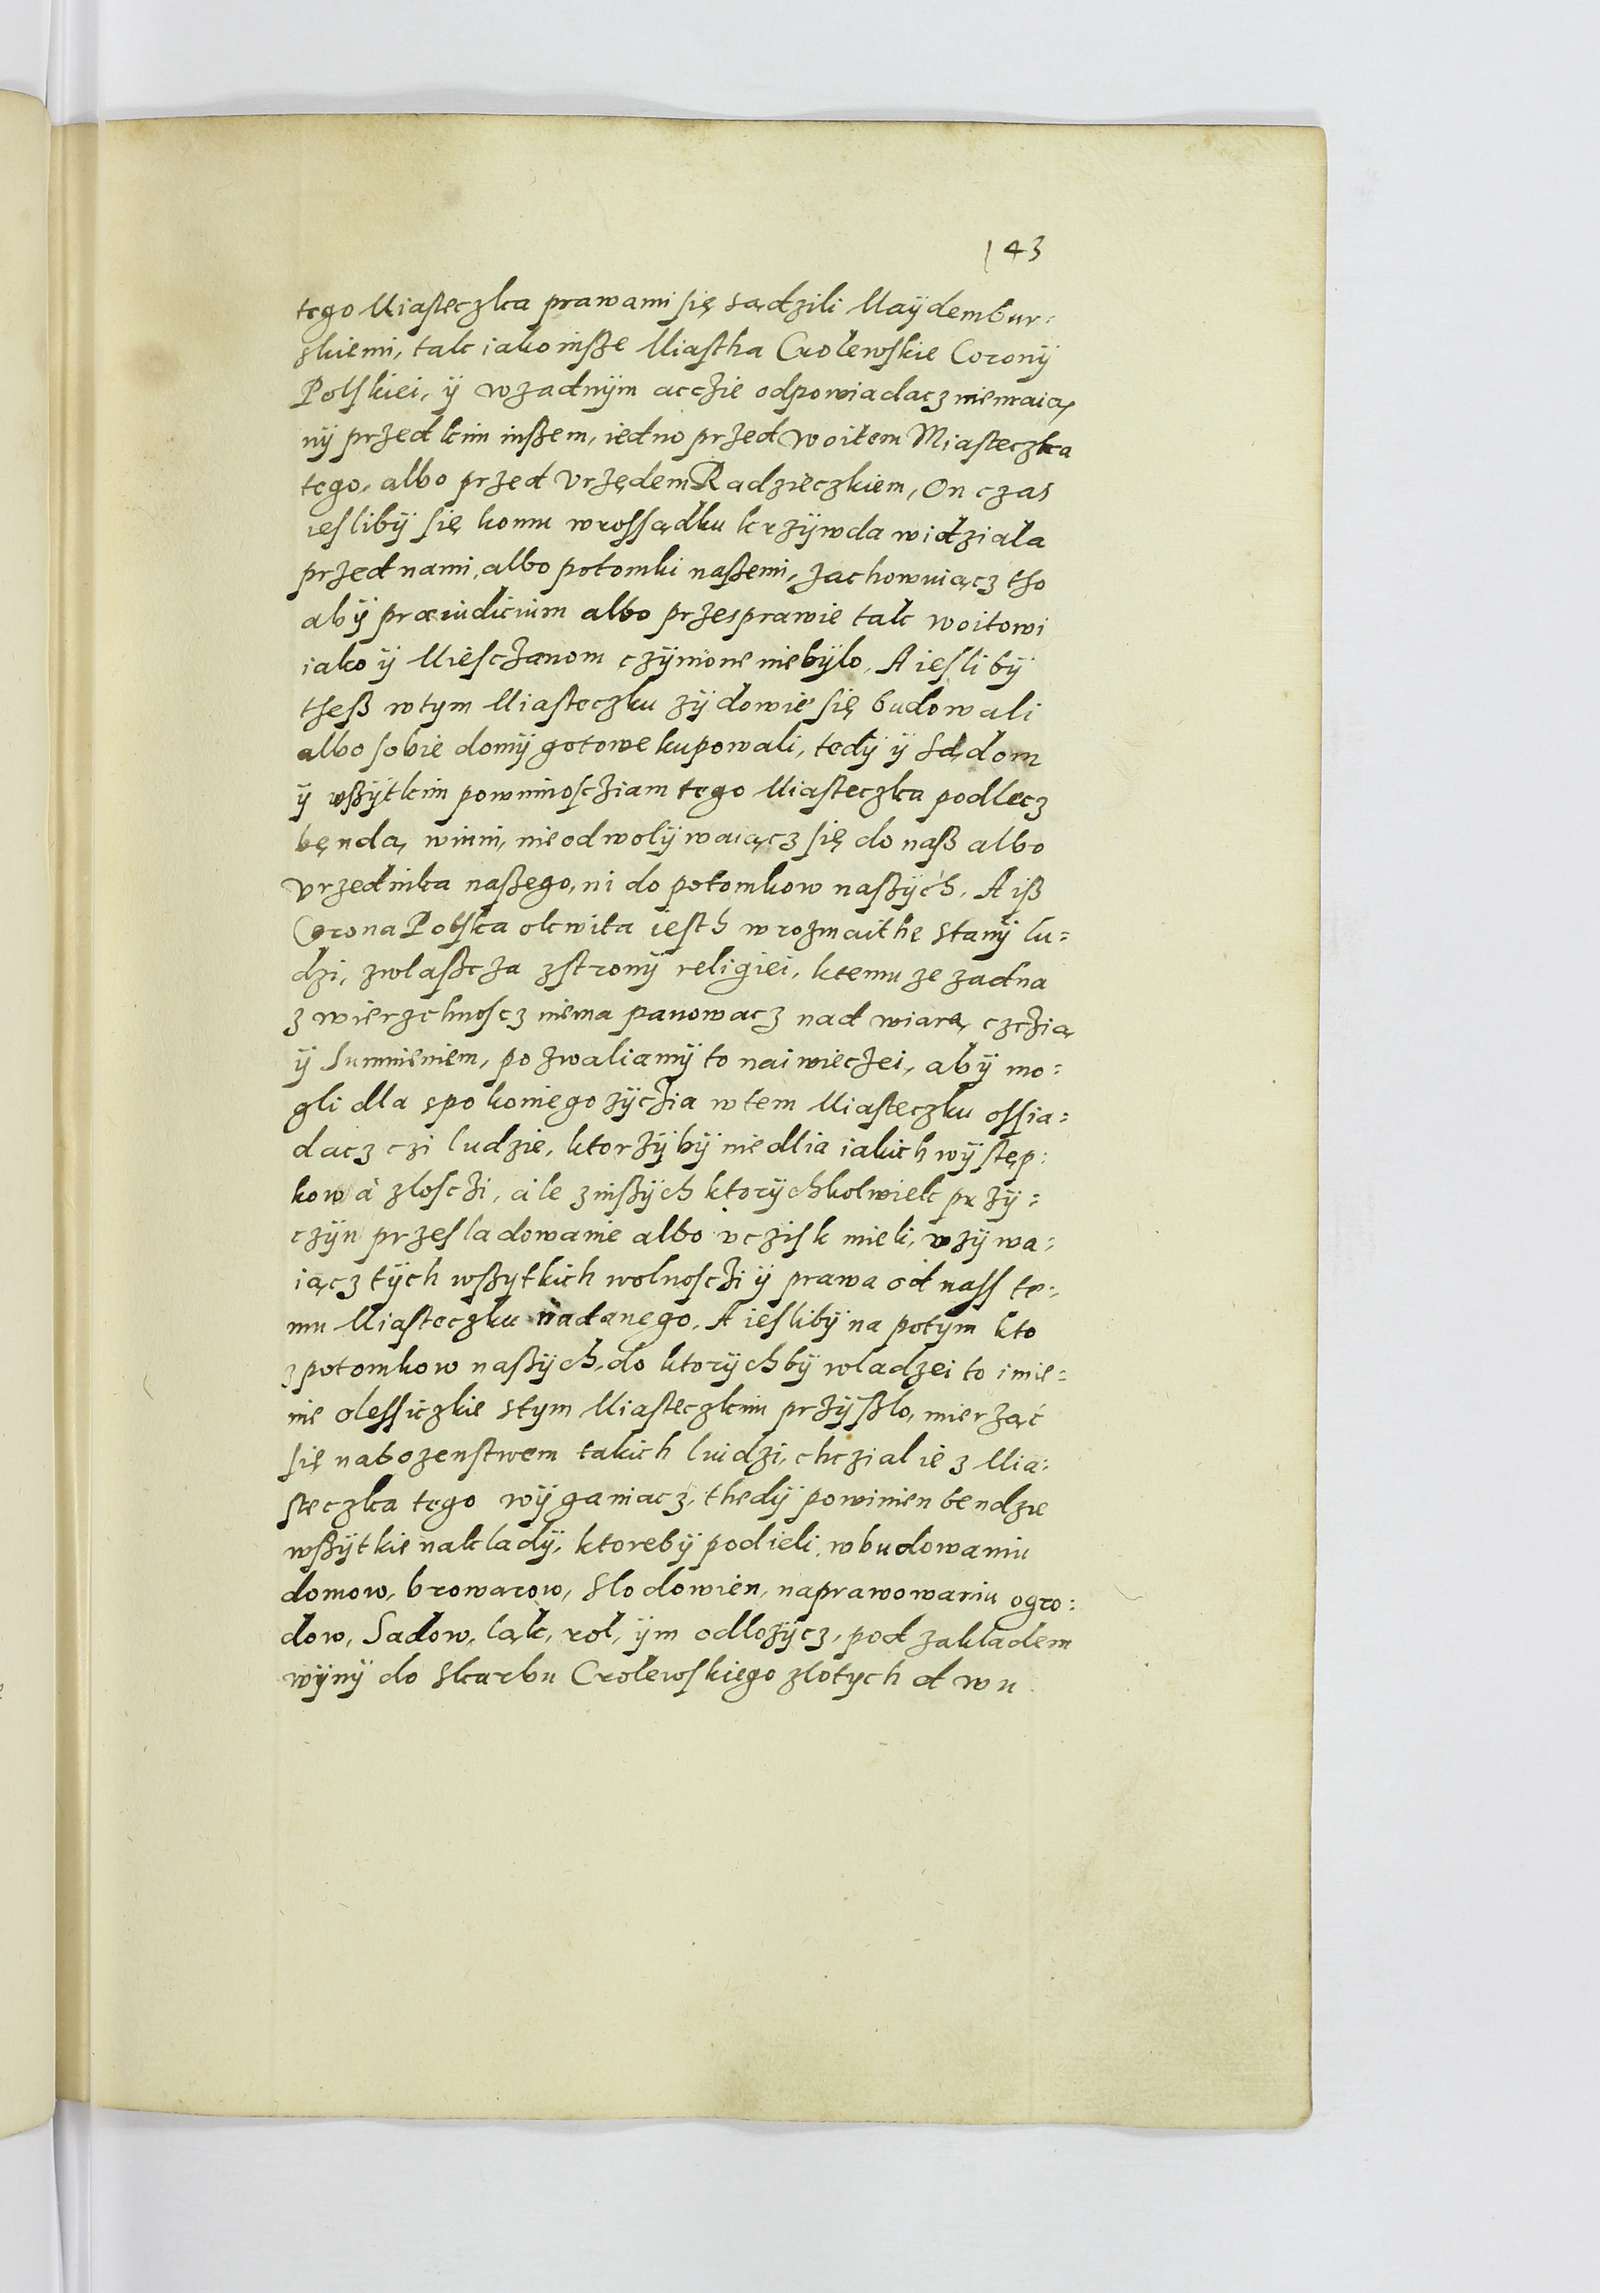 143
tego Miasteczka prawami się sądzili Maÿdembur=
skiemi, tak iako insße Miastha Crolewskie Coronÿ
Polskiei, ÿ wzadnÿm acczie odpowiadacz niemaią,
nÿ przed kim inßem, iedno przed woitem Miasteczka
tego, albo przed vrzędem Radzieczkiem, On czas
iesliбÿ się komu wrossądku krzÿwda widziala
przed nami, albo potomki naßemi, zachowuiącz tho
abÿ præiudicium albo przesprawie tak woitowi
iako ÿ Miesczanom czÿnione niebÿlo, A ieslibÿ
theß wtym Miasteczku zÿdowie się budowali
albo sobie domÿ gotowe kupowali, tedÿ ÿ sądom
ÿ wßÿtkim powinnoscziam tego Miasteczka podlecz
będą winni, nieodwolÿwaiącz się do naß albo
vrzednika naßego, ni do potomkow naßÿch. A iß
Corona Polska okwita iesth wrozmaithe stanÿ lu=
dzi, zwlaßcza zstronÿ religiei, ktemu ze zadna
zwierzchnoscz niema panowacz nad wiarą, czczią
ÿ sumnieniem, pozwaliamÿ to naiwieczei, abÿ mo=
gli dla spokoniego zÿczia wtem Miasteczku ossia=
dacz czi ludzie, ktorzÿbÿ niedlia iakich wÿstęp=
kow a zlosczi, ale zinßÿch ktorÿchkolwiek przÿ=
czÿn przesladowanie albo vczisk mieli, vzÿwa=
iącz tÿch wßytkich wolnosczi ÿ prawa od nass te=
mu Miasteczku nadanego. A ieslibÿ na potÿm kto
z potomkow naßÿch, do ktorÿchbÿ wladzei to imie=
nie olessiczkie stym Miasteczkim przÿßlo, mierząć
się nabozenstwem takich luidzi, chczial ie z Mia=
steczka tego wÿganiacz, thedÿ powinien bendzie
wßÿtkie nakladÿ, ktorebÿ podieli wbudowaniu
domow, browarow, slodowien, naprawowaniu ogro=
dow, Sadow, ląk, rol, ÿm odlozÿcz, pod zakladem
wÿnÿ do skarbu Crolewskiego zlotych dwu